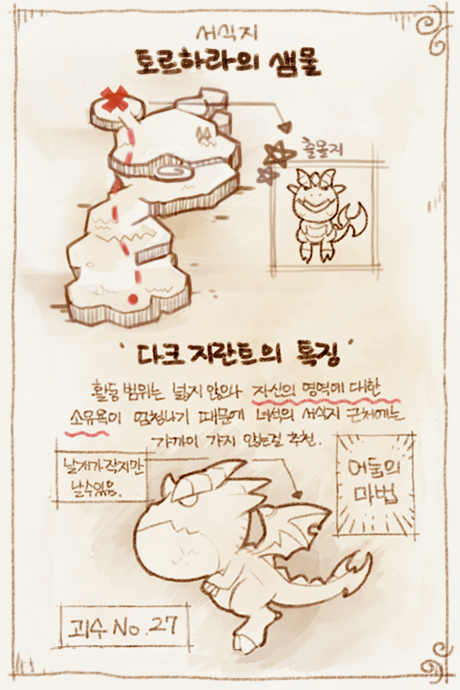 서식지
토르하라의 샘물
출몰지
' 다크 지란트의 특징 '
활동 범위는 넓지 않으나 자신의 영역에 대한
소유욕이 엄청나기 때문에 녀석의 서식지 근처에는
가까이 가지 않는걸 추천.
날개가 작지만
날수있음.
어둠의
마법
괴수 No. 27